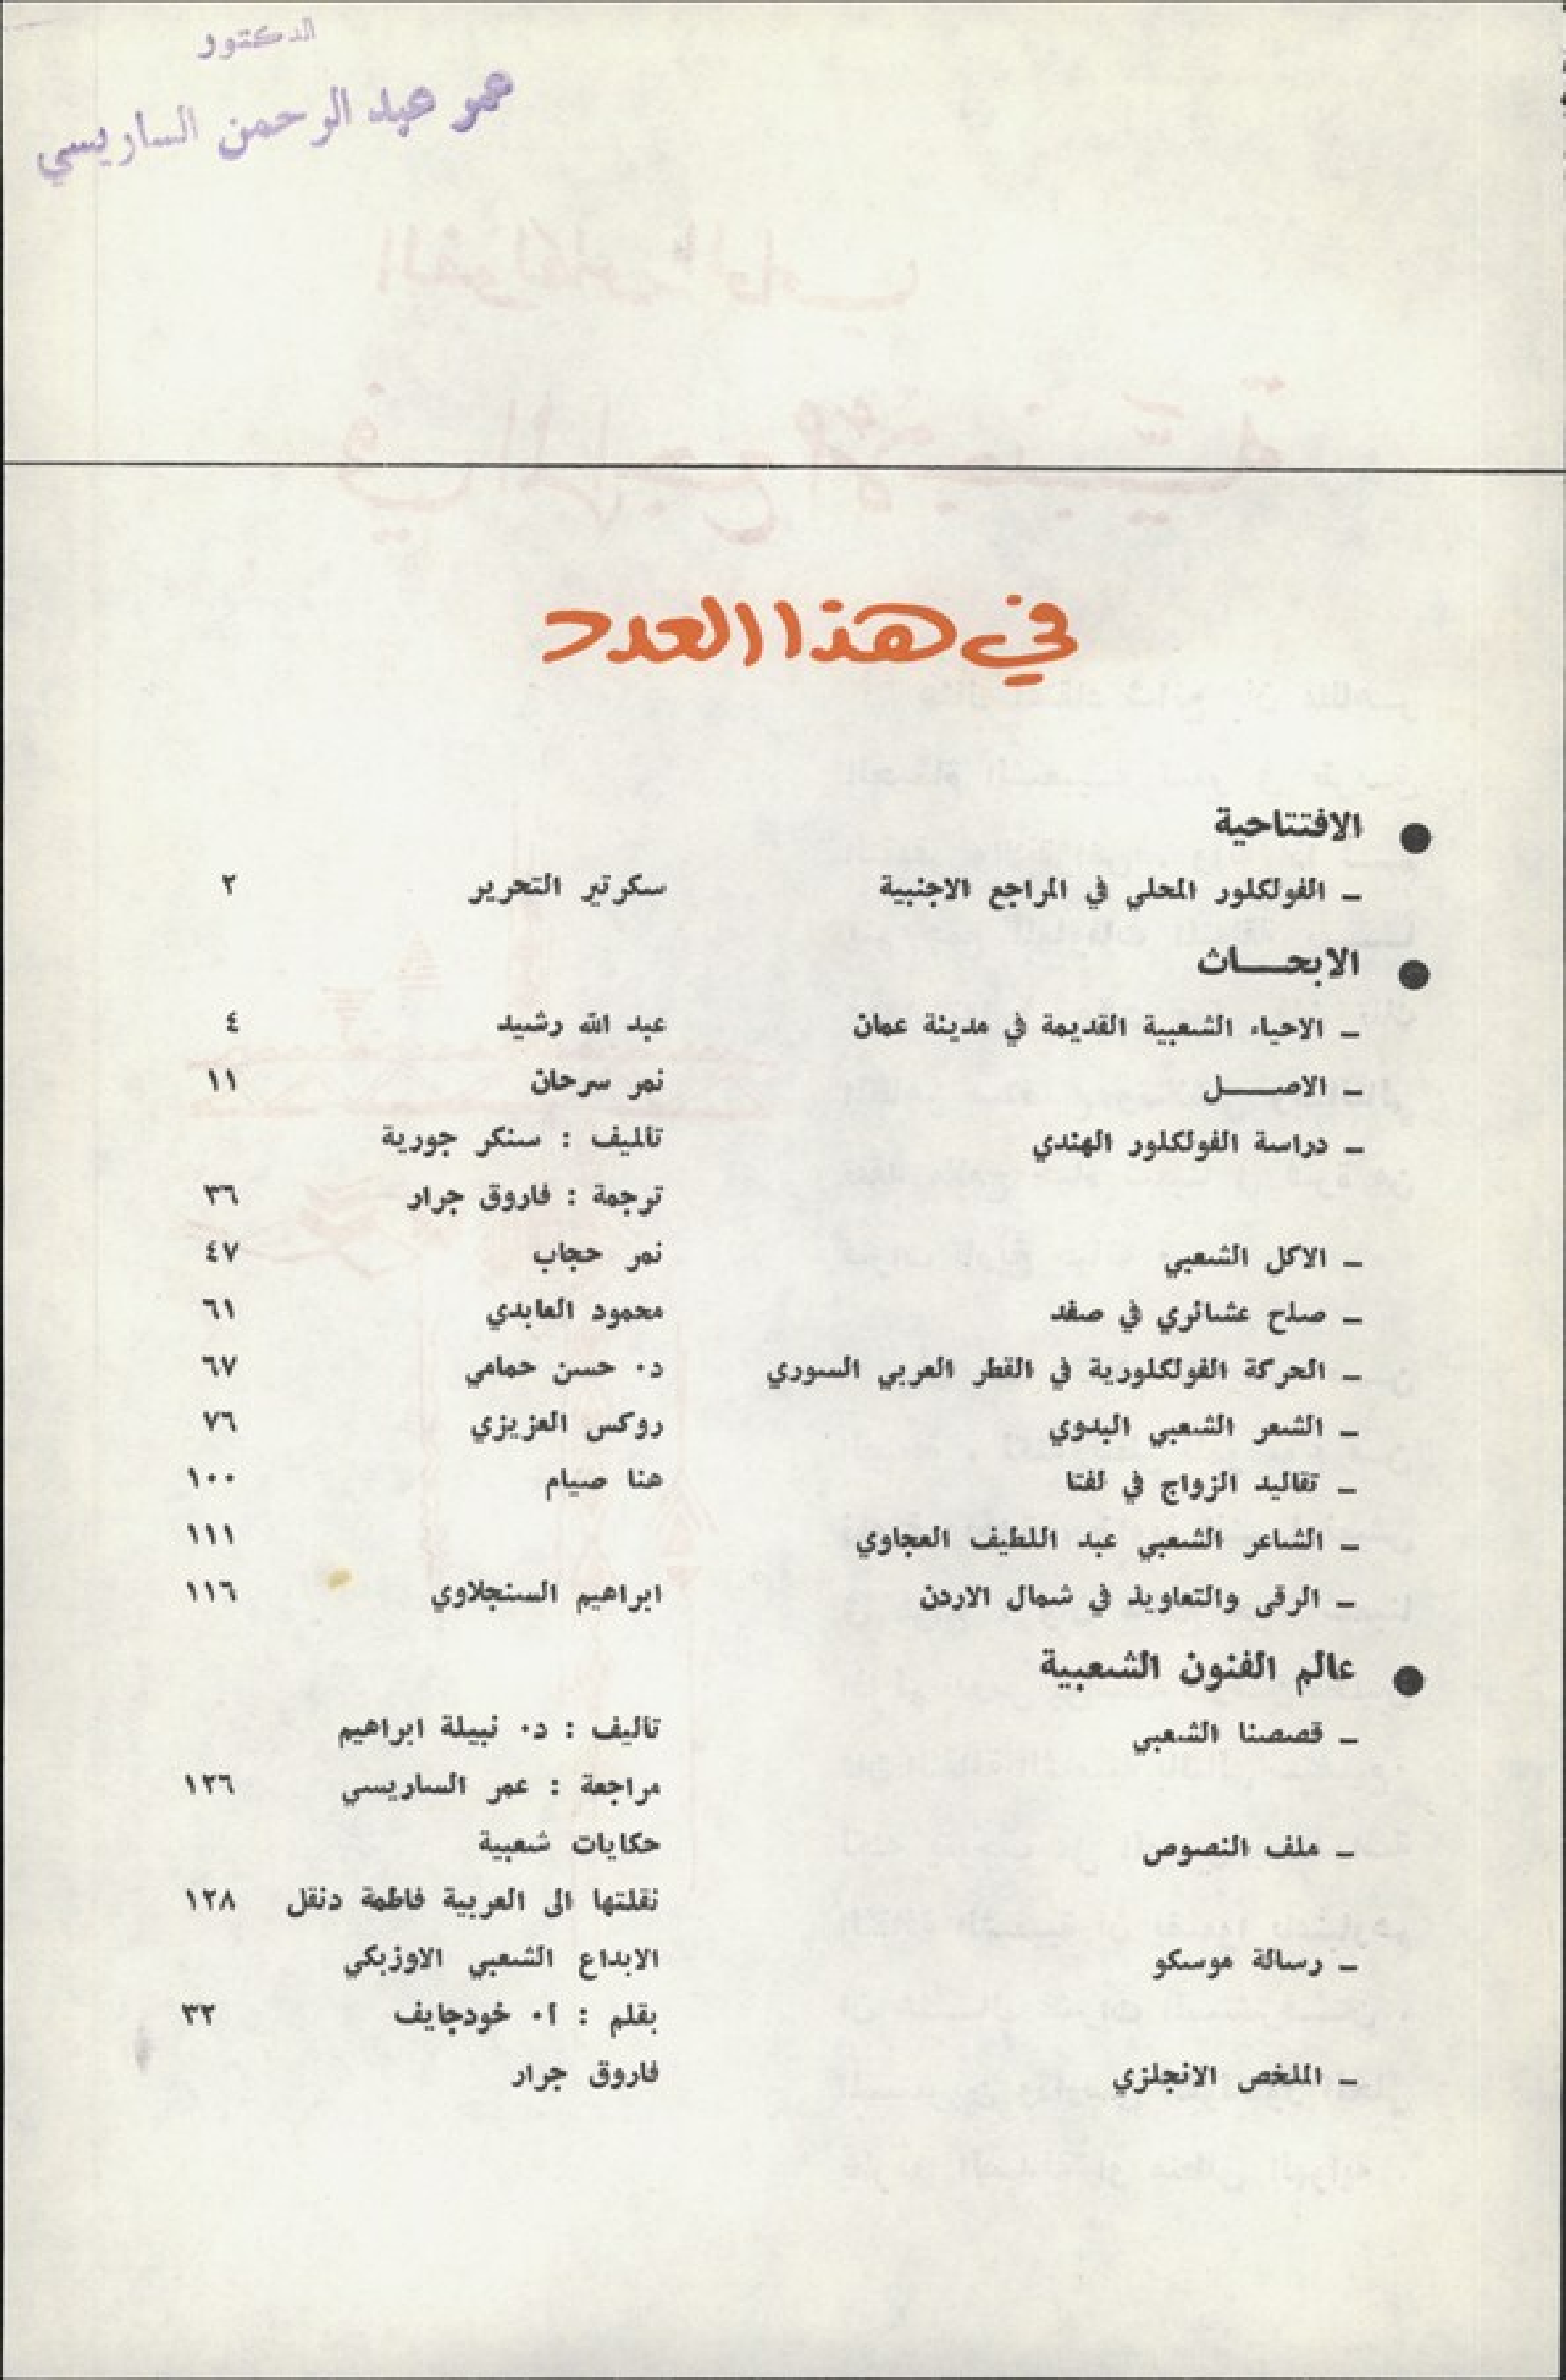 الدكتور
عمر عبد الرحمن الساريسي
في هذا العدد
● الافتتاحية
ـ الفولكلور المحلي في المراجع الاجنبية سكرتير التحرير ٢
● الابحـــاث
ـ الاحياء الشعبية القديمة في مدينة عمان عبد الله رشيد ٤
ـ الاصـــل نمر سرحان ١١
ـ دراسة الفولكلور الهندي تأليف : سنكر جورية
ترجمة : فاروق جرار ٣٦
ـ الاكل الشعبي نمر حجاب ٤٧
ـ صلح عشائري في صفد محمود العابدي ٦١
ـ الحركة الفولكلورية في القطر العربي السوري د. حسن حمامي ٦٧
ـ الشعر الشعبي البدوي روكس العزيزي ٧٦
ـ تقاليد الزواج في لفتا هنا صيام ١٠٠
ـ الشاعر الشعبي عبد اللطيف العجاوي ١١١
ـ الرقى والتعاويذ في شمال الاردن ابراهيم السنجلاوي ١١٦
● عالم الفنون الشعبية
ـ قصصنا الشعبي تأليف : د. نبيلة ابراهيم
مراجعة : عمر الساريسي ١٢٦
ـ ملف النصوص حكايات شعبية
نقلتها الى العربية فاطمة دنقل ١٢٨
ـ رسالة موسكو الابداع الشعبي الاوزبكي
بقلم : أ. خودجايف ٣٢
ـ الملخص الانجلزي فاروق جرار